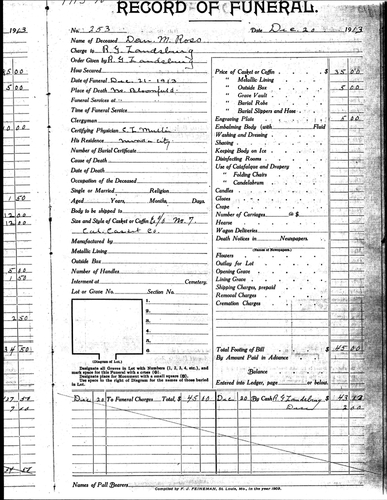 RECORD OF FUNERAL.
1913
No. 253
Date Dec. 20 1913
Name of Deceased Dan. M. Ross
Charge to R. G. Landsburg
Order Given by R. G. Landsburg
How Secured
Date of Funeral Dec. 21 - 1913
Place of Death No. Bloomfield
Funeral Services at
Time of Funeral Service
Clergyman
Certifying Physician
His Residence
Number of Burial Certificate
Cause of Death
Date of Death
Occupation of the Deceased
Single or Married Religion
Aged Years, Months, Days.
Body to be shipped to
Size and Style of Casket or Coffin 6/0 M. 7
Cal. Casket Co.
Manufactured by
Metallic Lining
Outside Box
Number of Handles
Interment at Cemetery.
Lot or Grave No. Section No.
1.
2.
3.
4.
5.
6.
(Diagram of Lot.)
Designate all Graves in Lot with Numbers (1, 2, 3, 4, etc.), and
mark space for this Funeral with a cross
Designate place for Monument with a small square
Use space to the right of Diagram for the names of those buried
in Lot.
Price of Casket or Coffin $ 35 00
" Metallic Lining
" Outside Box 5 00
" Grave Vault
" Burial Robe
" Burial Slippers and Hose
Engraving Plate 5 00
Embalming Body (with Fluid
Washing and Dressing
Shaving
Keeping Body on Ice
Disinfecting Rooms
Use of Catafalque and Drapery
" Folding Chairs
" Candelabrum
Candles
Gloves
Crape
Number of Carriages @ $
Hearse
Wagon Deliveries
Death Notices in Newspapers.
(Names of Newspapers.)
Flowers
Outlay for Lot
Opening Grave
Lining Grave
Shipping Charges, prepaid
Removal Charges
Cremation Charges
Total Footing of Bill $ 45 00
By Amount Paid in Advance
Balance
Entered into Ledger, page or below.
Dec 20 To Funeral Charges Total, $ 45 00
Dec 20 By Cash R G Landsburg $ 43 00
Disc 2 00
Names of Pall Bearers
Compiled by F. J. FEINEMAN, St. Louis, Mo., in the year 1902.